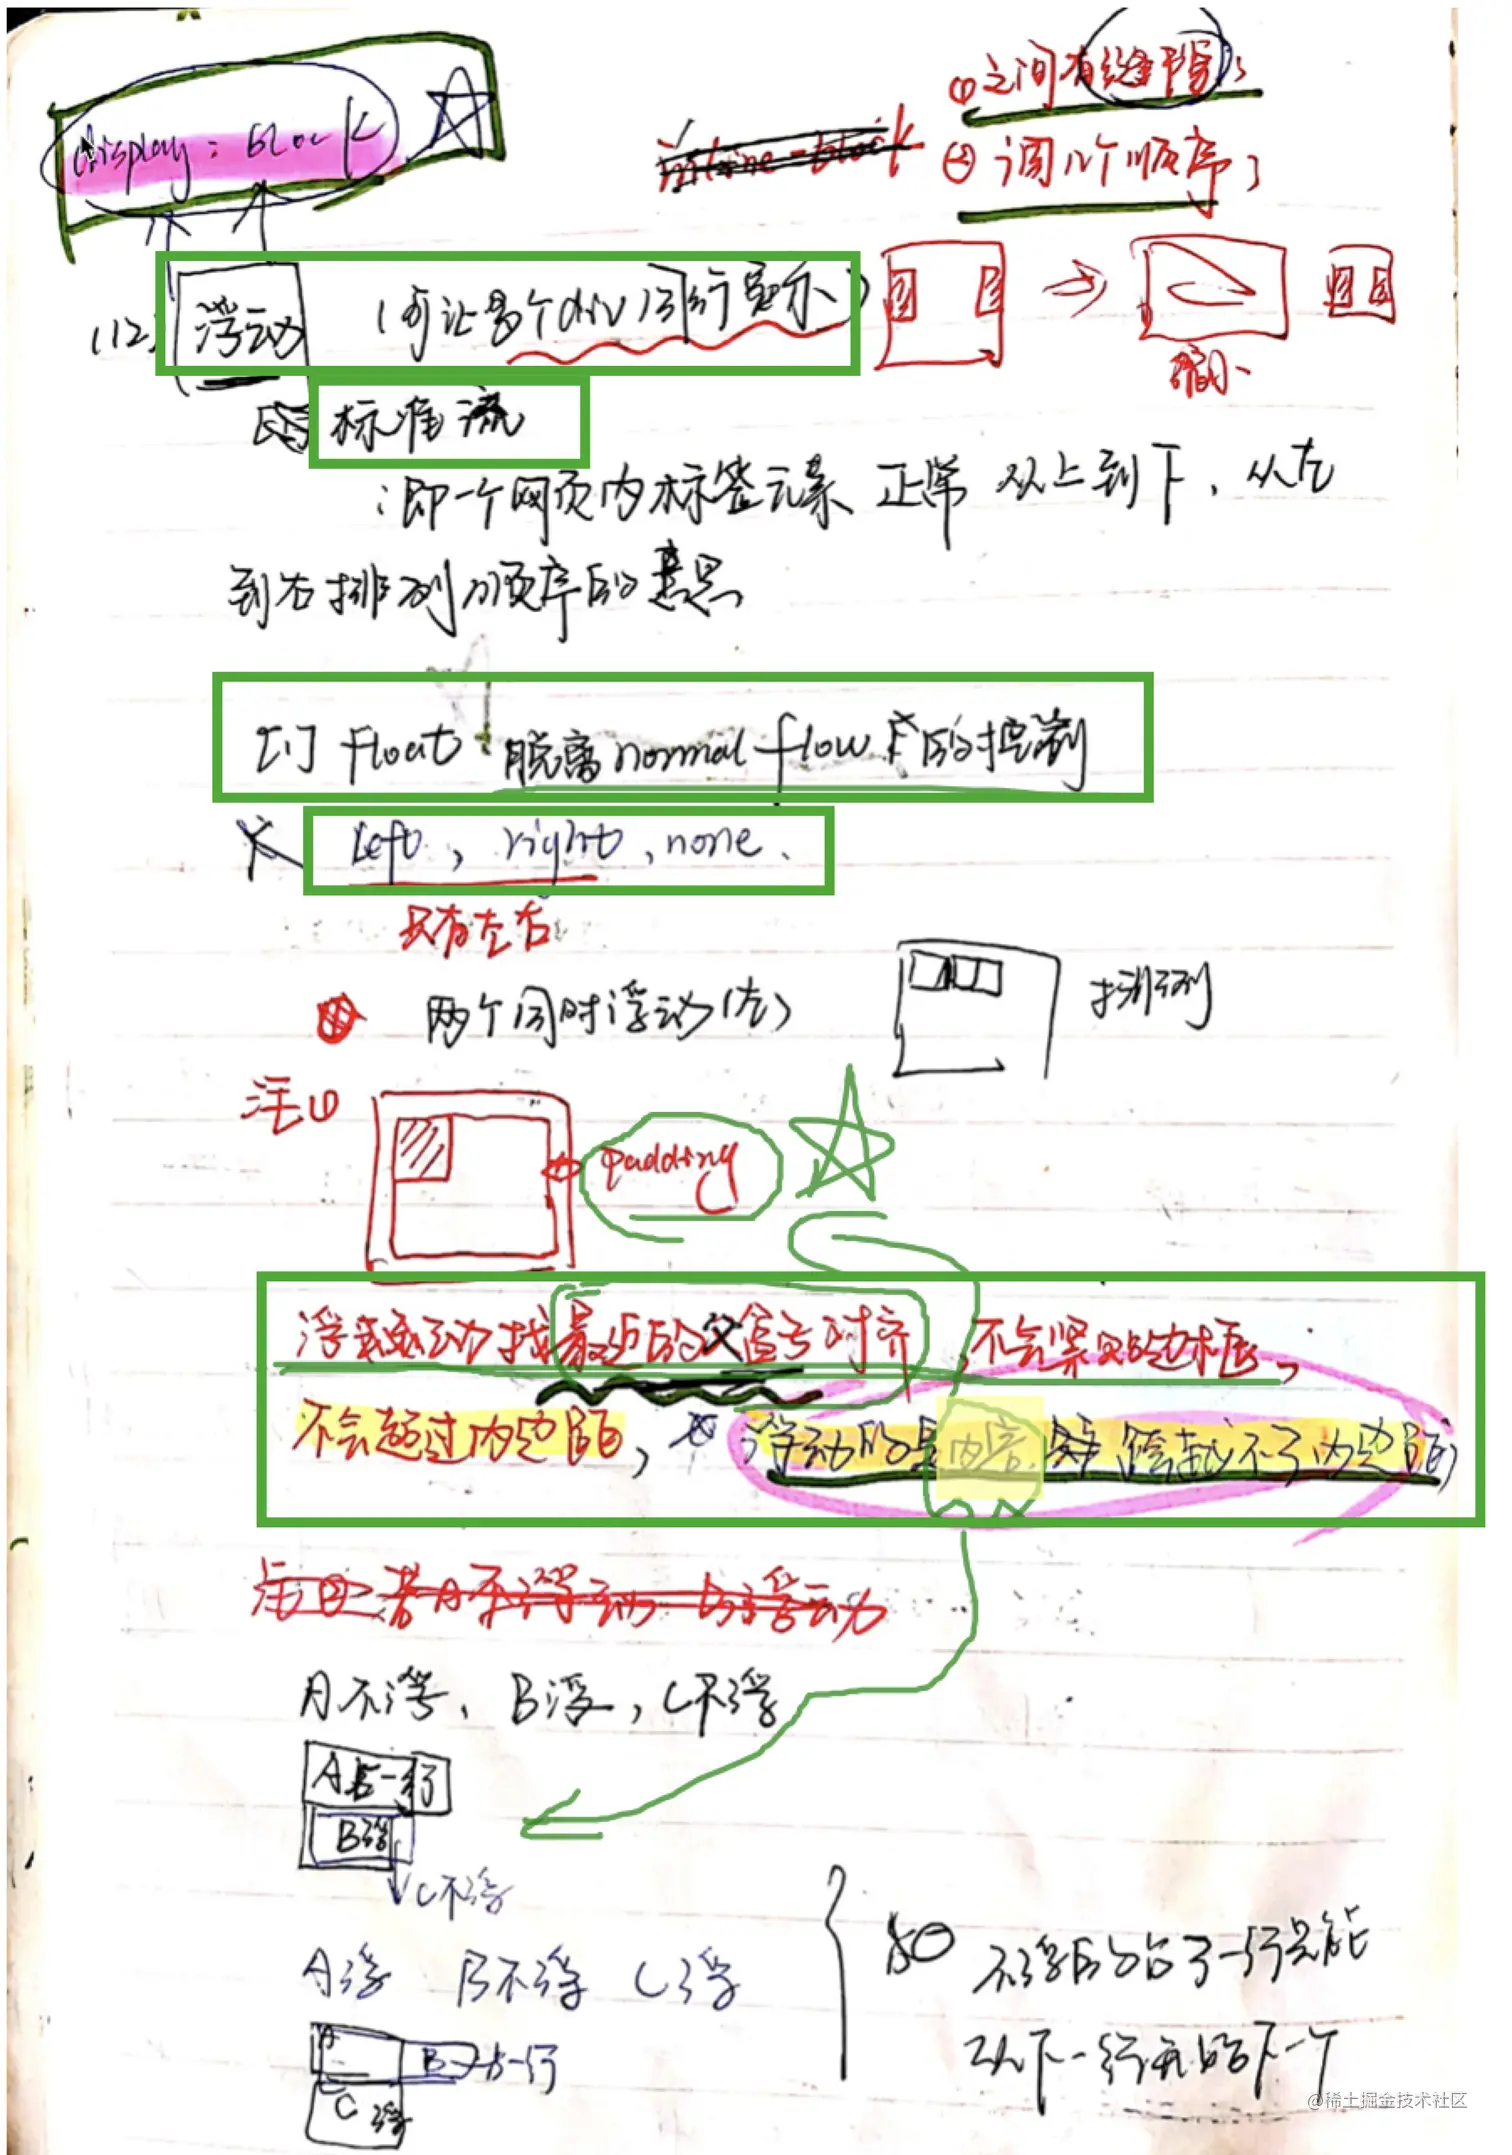 display: block
inline-block ① 之间有缝隙;
② 调几个顺序;
(12) 浮动 (可让多个div同行显示)
缩小
标准流
:即一个网页内标签元素正常从上到下,从左
到右排列顺序的意思
[1] Float 脱离normal flow 的控制
left, right, none、
只有左右
两个同时浮动(左) 排列
注① padding
浮动找最近的父盒子对齐,不会紧贴边框,
不会超过内边距, 浮动的是内容 跨越不了内边距;
注② 若A不浮动 B浮动
A不浮、B浮,C不浮
A占一行
B浮
C不浮
A浮 B不浮 C浮
A B 占一行
C浮
so 不浮的占了一行只能
从下一行 下一个
@稀土掘金技术社区